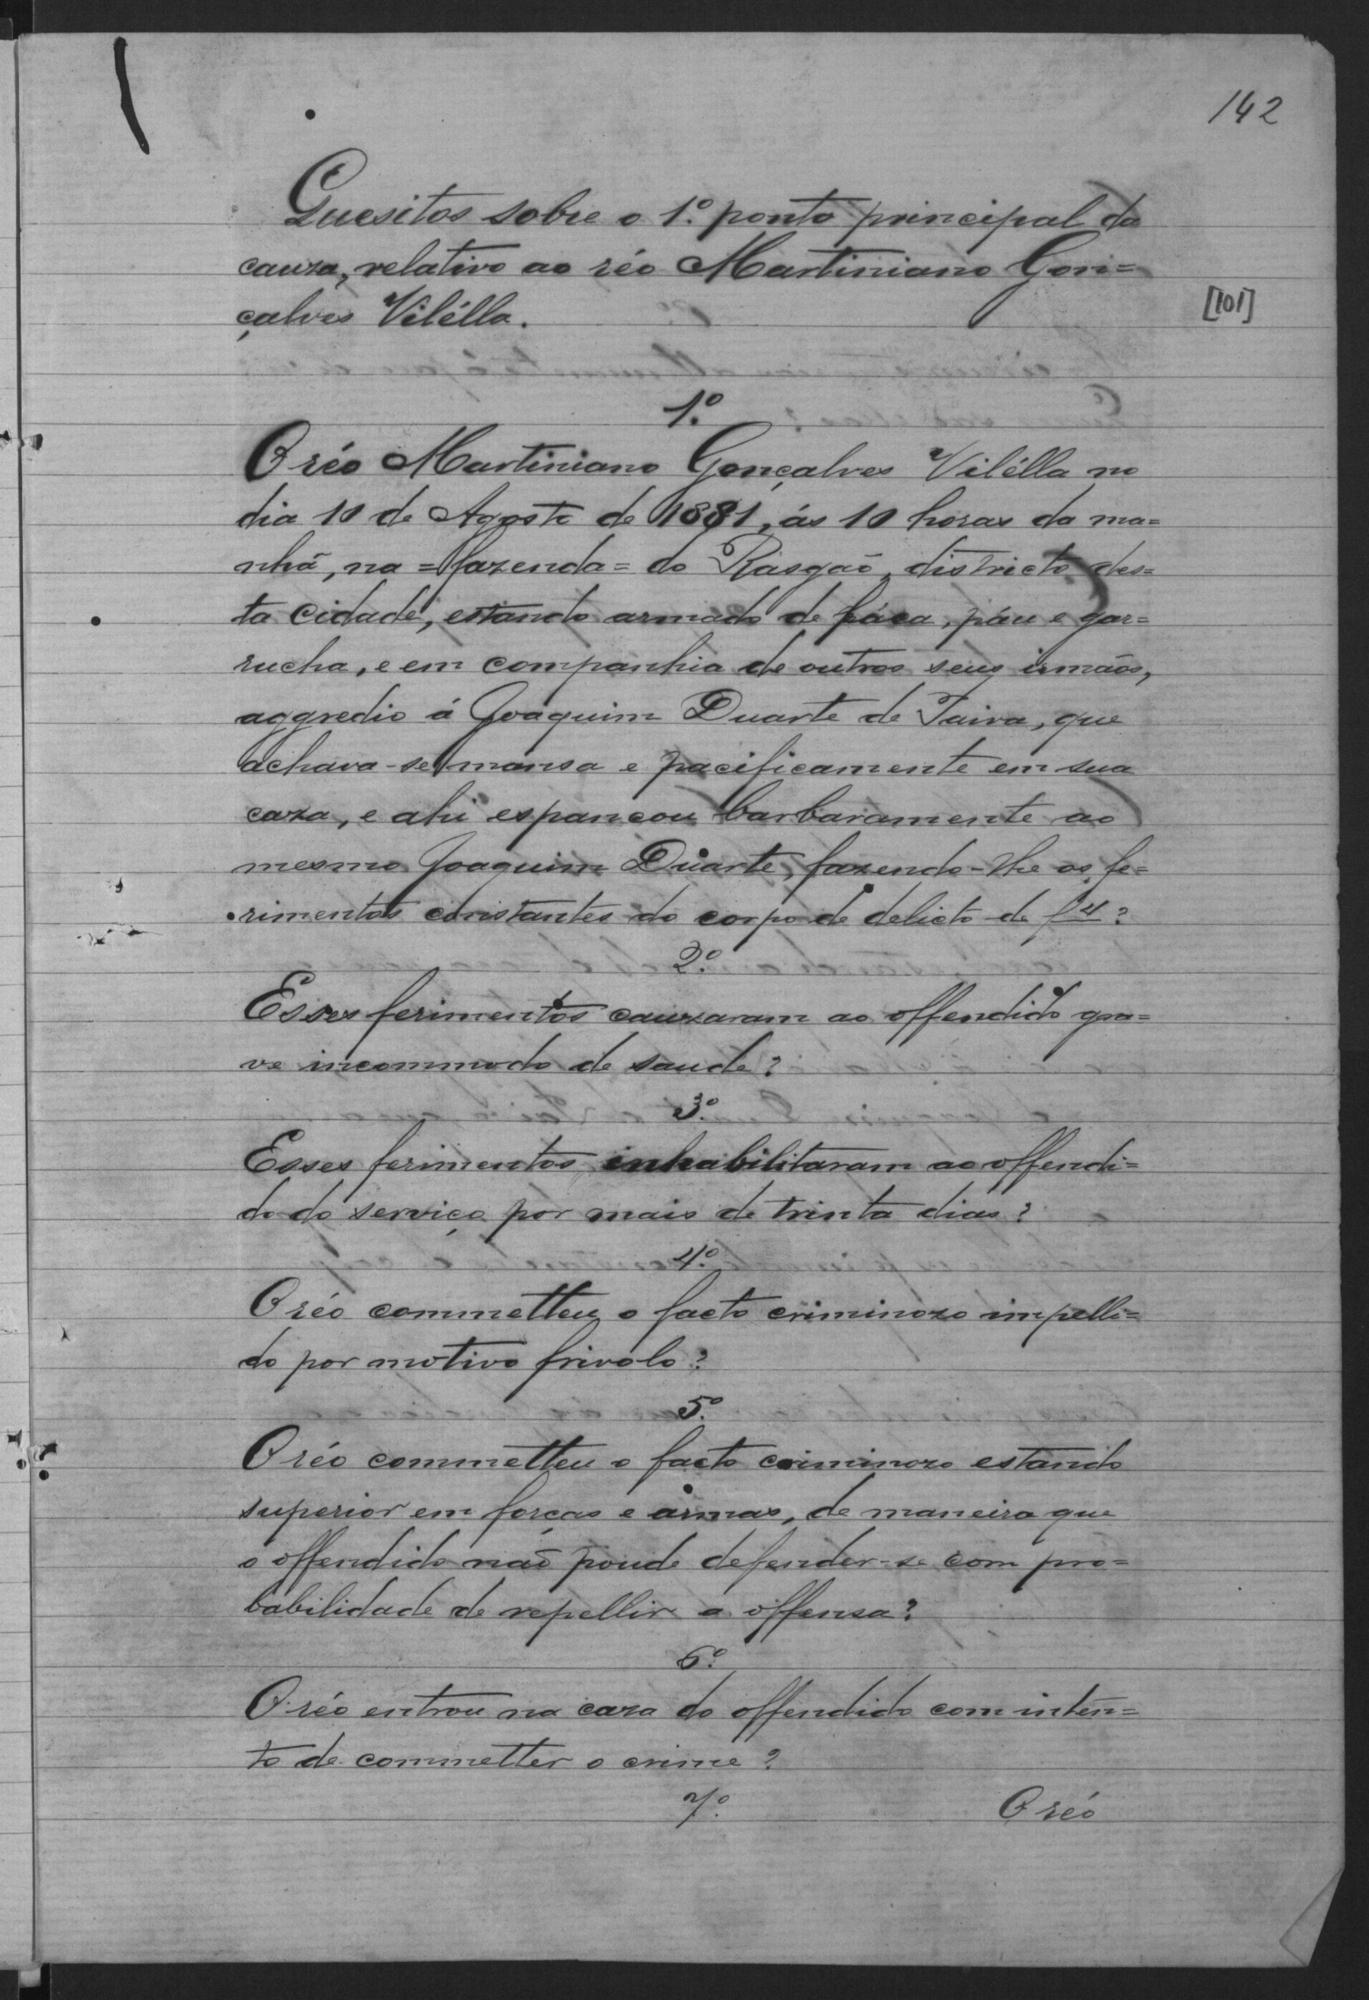 142
Quesitos sobre o 1.º ponto principal da
cauza, relativo ao réo Martiniano Gon=
çalves Vilélla.
[101]
1.º
O réo Martiniano Gonçalves Vilélla no
dia 10 de Agosto de 1881, ás 10 horas da ma=
nhã, na =fazenda= do Rasgaõ, districto des=
ta cidade, estando armado de fáca, páu e gar=
rucha, e em companhia de outros seus irmãos,
aggredio á Joaquim Duarte de Paiva, que
achava-se mansa e pacificamente em sua
caza, e ahi espancou barbaramente ao
mesmo Joaquim Duarte, fazendo-lhe os fe=
rimentos constantes do corpo de delicto de f 4?
2.º
Esses ferimentos cauzaram ao offendido gra=
ve incommodo de saude?
3.º
Esses ferimentos inhabilitaram ao offendi=
do do serviço por mais de trinta dias?
4.º
O réo commetteu o facto criminozo impelli=
do por motivo frivolo?
5.º
O réo commetteu o facto criminozo estando
superior em forças e armas, de maneira que
o offendido naõ poude defender-se com pro=
babilidade de repellir a offensa?
6.º
O réo entrou na caza do offendido com inten=
to de commetter o crime?
7.º
O réo